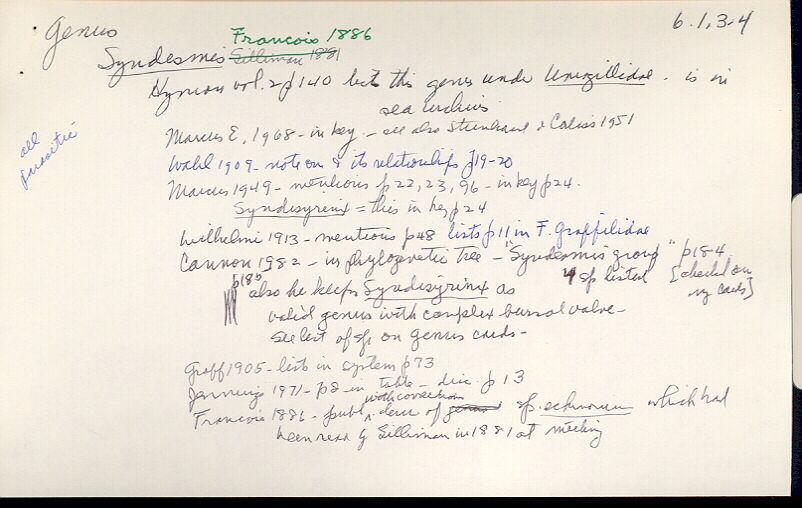 Genus 6.1.3.4
Francois 1886
Syndesmis Silliman 1881
Hyman vol. 2 p 140 lists this genus under Umagillidae - is in
sea urchins
all parasitic
Marcus E. 1968 - in key - see also Steinhaus & Caliss 1951
Wahl 1909 - note on & its relationships p19-20
Marcus 1949 - mentions p 22, 23, 96 - in key p 24.
Syndisyrinx = this in key p 24
Wilhelmi 1913 - mentions p48 lists p11 in F. Graffilidae
Cannon 1982 - in phylogenetic tree - "Syndesmis group" p184
p185 4 sp listed [checked on
also he keeps Syndisyrinx as my cards]
valid genus with complex bursal valve -
see list of sp on genus cards -
Graff 1905 - list in system p73
Jennings 1971 - p2 - in table - disc. p 13
with correction
Francois 1886 - publ desc of genus sp. echinorum which had
been read by Silliman in 1881 at meeting